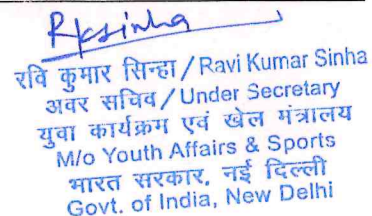 Rksinha
रवि कुमार सिन्हा/Ravi Kumar Sinha
अवर सचिव/Under Secretary
युवा कार्यक्रम एवं खेल मंत्रालय
M/o Youth Affairs & Sports
भारत सरकार, नई दिल्ली
Govt. of India, New Delhi